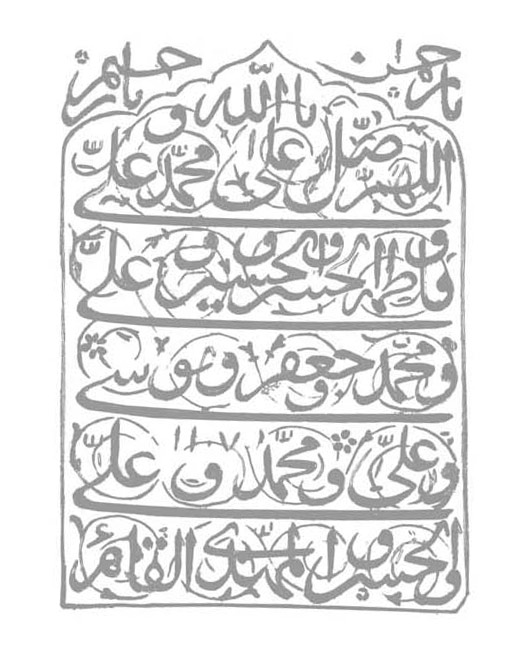 یا رحمن یا رحیم
یا الله
اللهم صل علی محمد و علی
و فاطمه و الحسن و الحسین و علی
و محمد و جعفر و موسی
و علی و محمد و علی
و الحسن و المهدی القائم